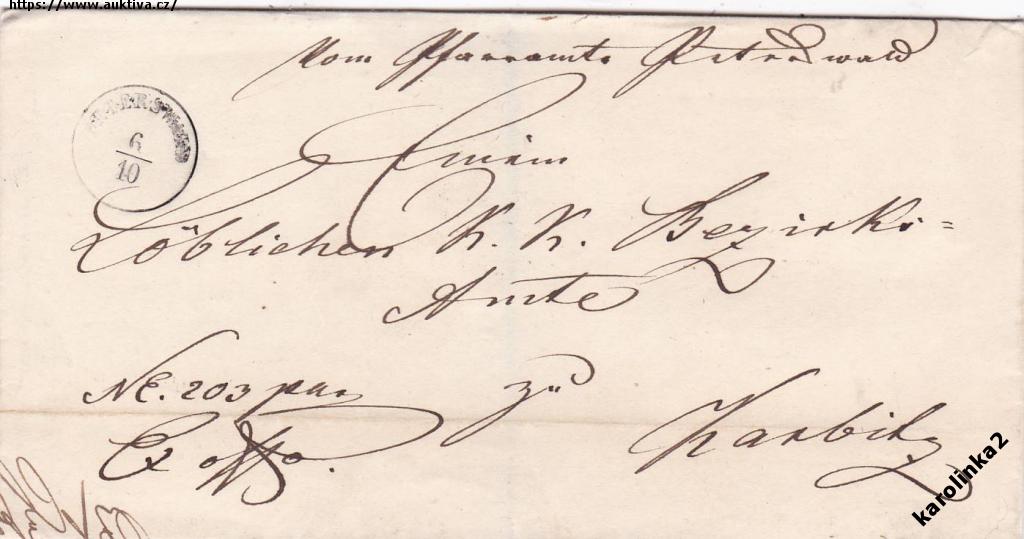 https://www.auktiva.cz/
Vom Pfarramte Peterswald
PETERSWALD
6
10
Einem
Löblichen K. K. Bezirks=
Amte
NE. 203 par
zu
Ex offo.
Karbitz
karolinka2